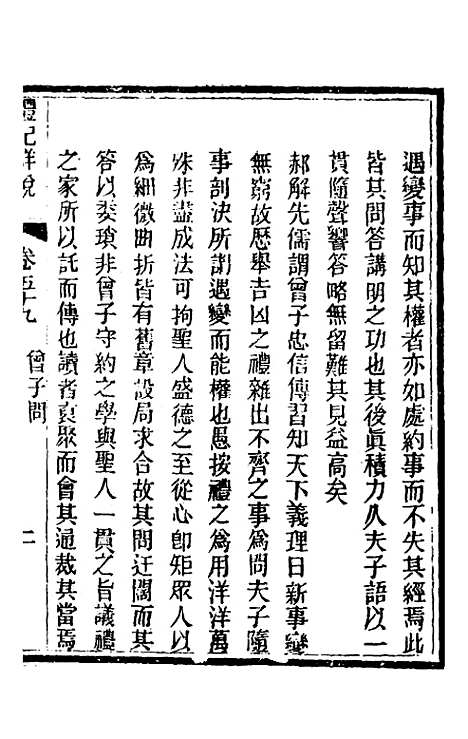 遇變事而知其權者亦如處約事而不失其經焉此
皆其問答講明之功也其後眞積力久夫子語以一
貫隨聲響答略無留難其見益高矣
郝解先儒謂曾子忠信傳習知天下義理日新事變
無窮故歷舉吉凶之禮雜出不齊之事爲問夫子隨
事剖決所謂遇變而能權也愚按禮之爲用洋洋萬
殊非盡成法可拘聖人盛德之至從心卽矩眾人以
爲細微曲折皆有舊章設局求合故其問迂闊而其
答以委瑣非曾子守約之學與聖人一貫之旨議禮
之家所以託而傳也讀者裒聚而會其通裁其當焉
禮記詳說 卷五十九 曾子問 二